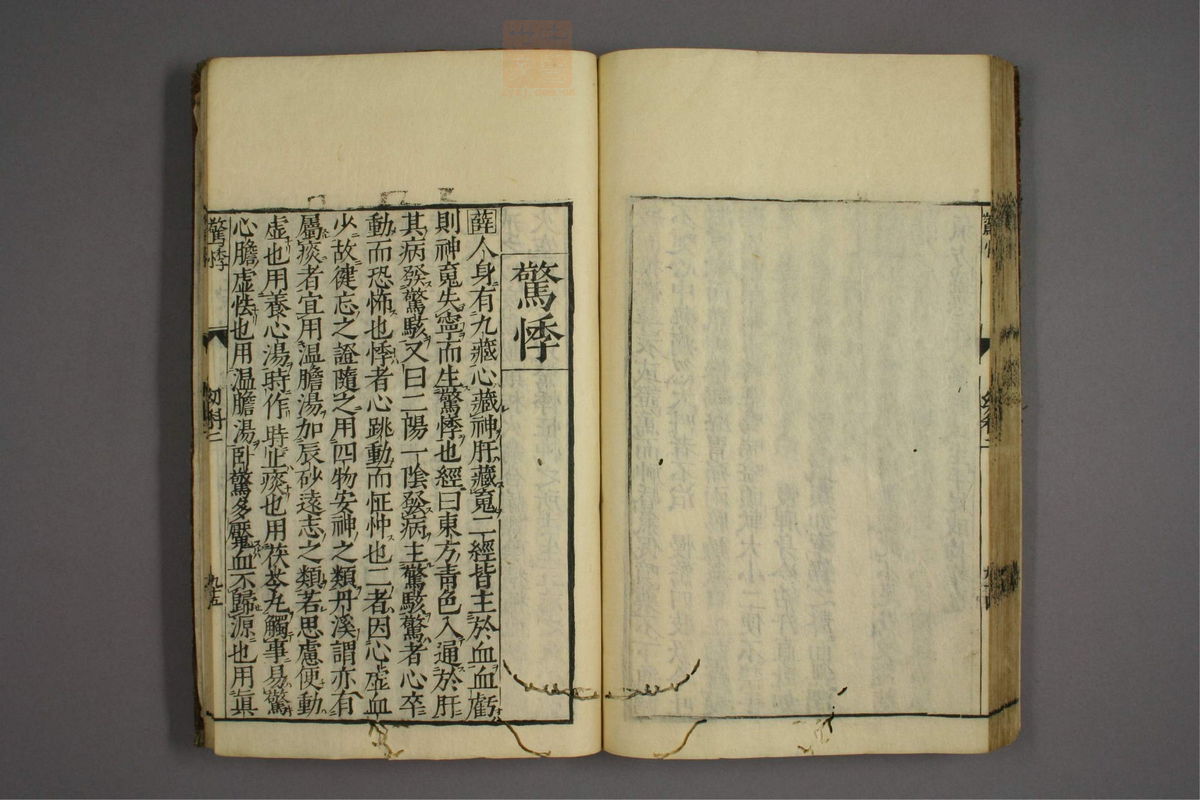 驚悸
薛人身有九藏心藏神肝藏䰟二經皆主於血血虧
則神䰟失寧而生驚悸也經曰東方青色入通於肝
其病發驚駭又曰二陽一陰發病主驚駭驚者心卒
動而恐怖也悸者心跳動而怔忡也二者因心虛血
少故徤忘之證隨之用四物安神之類丹溪謂亦有
屬痰者宜用温膽湯加辰砂遠志之類若思慮便動
虛也用養心湯時作時止痰也用茯苓丸觸事易驚
心膽虛怯也用温膽湯卧驚多魘血不歸源也用眞
驚悸
幼科二
九十五